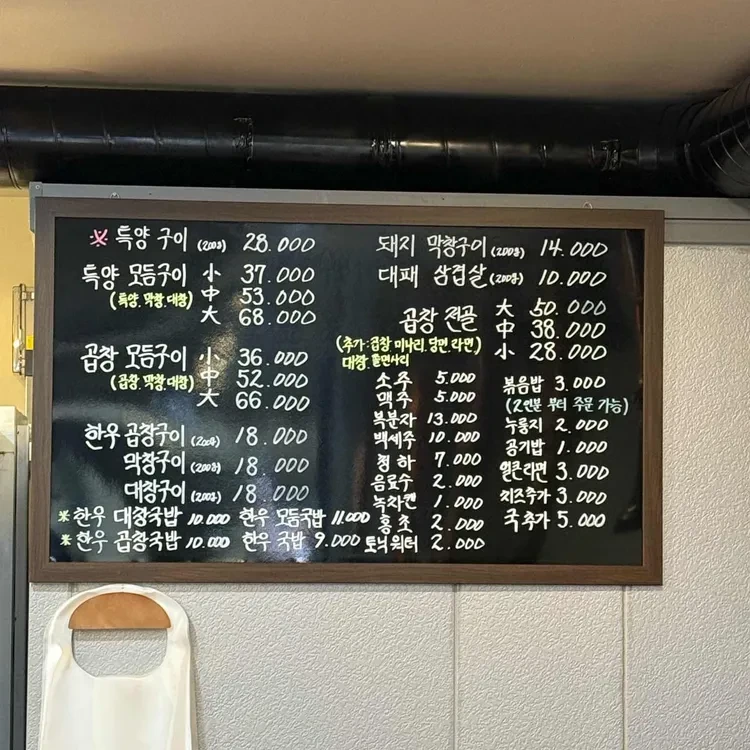 ※ 특양 구이 (200g) 28.000
특양 모듬구이 小 37.000
(특양. 막창. 대창) 中 53.000
大 68.000
곱창 모듬구이 小 36.000
(곱창. 막창. 대창) 中 52.000
大 66.000
한우 곱창구이 (200g) 18.000
막창구이 (200g) 18.000
대창구이 (200g) 18.000
※ 한우 대창국밥 10.000 한우 모듬국밥 11.000
※ 한우 곱창국밥 10.000 한우 국밥 9.000
돼지 막창구이 (200g) 14.000
대패 삼겹살 (200g) 10.000
곱창 전골 大 50.000
中 38.000
小 28.000
(추가: 곱창 미나리. 당면. 라면.)
대창. 쫄면사리
소주 5.000
맥주 5.000
복분자 13.000
백세주 10.000
청하 7.000
음료수 2.000
녹차캔 1.000
홍초 2.000
토닉워터 2.000
볶음밥 3.000
(2인분 부터 주문 가능)
누룽지 2.000
공기밥 1.000
얼큰라면 3.000
치즈추가 3.000
국추가 5.000